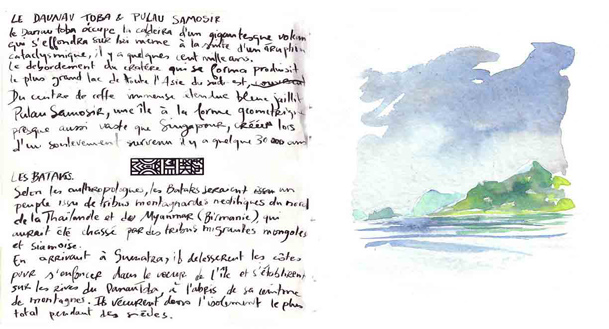 LE DAUNAU TOBA & PULAU SAMOSIR
Le Danau toba occupe la caldeira d'un gigantesque volcan
qui s'effondra sur lui même à la suite d'une éruption
cataclysmique, il y a quelques cent mille ans.
Le debordement du cratère qui se forma produisit
le plus grand lac de toute l'Asie du sud-est,
Du centre de cette immense étendue bleue jaillit
Pulau Samosir, une île à la forme géometrique
presque aussi vaste que Singapour, créée lors
d'un soulevement survenu il y a quelque 30 000 ans
LES BATAKS.
Selon les anthropologues, les Bataks seraient issu un
peuple issu de tribus montagnardes neolithiques du nord
de la Thaïlande et du Myanmar (Birmanie), qui
aurait été chassé par des tribus migrantes mongoles
et siamoise.
En arrivant à Sumatra, ils delaisserent les côtes
pour s'enfoncer dans le coeur de l'île et s'établirent
sur les rives du Danau Toba, à l'abris de sa ceinture
de montagnes. Ils vécurent dans l'isolement le plus
total pendant des siècles.